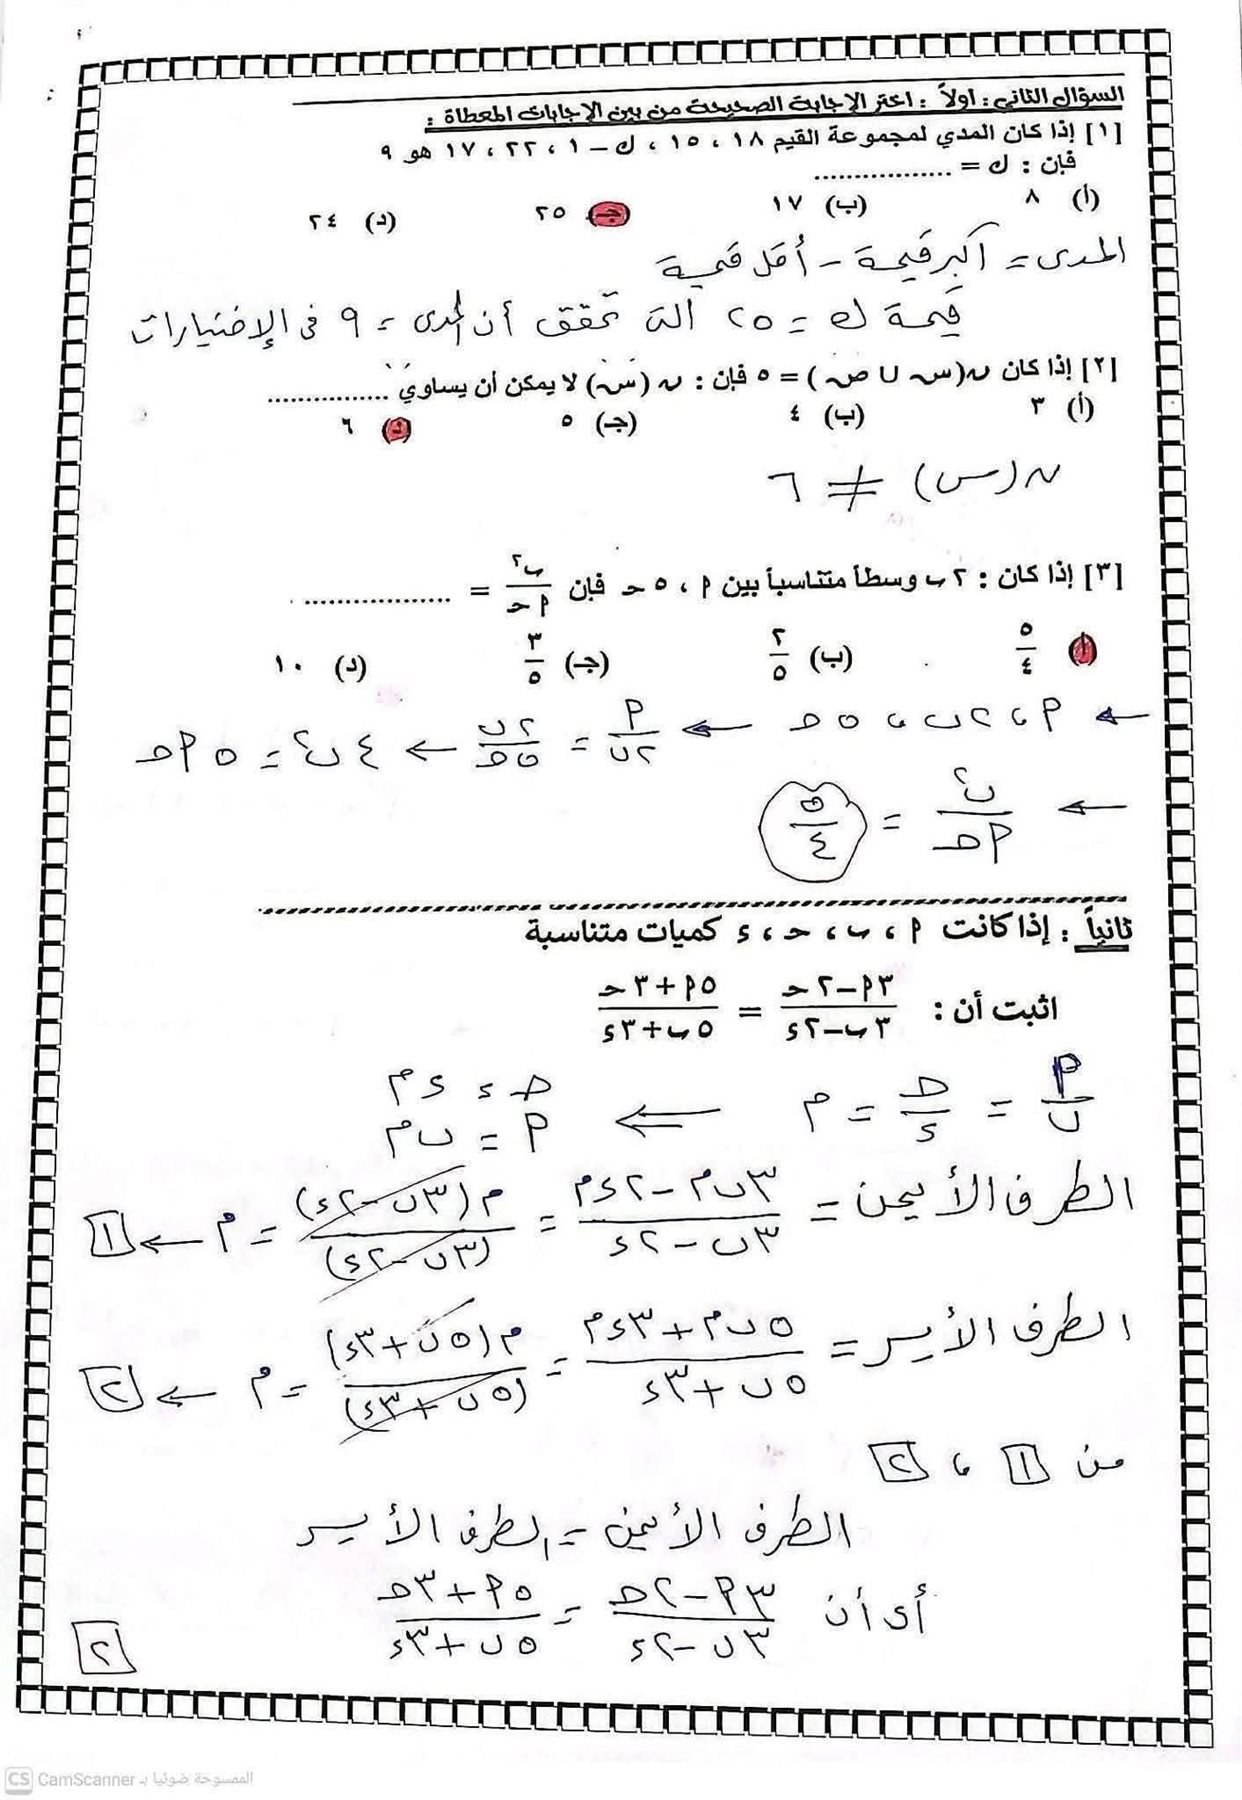 السؤال الثاني : أولاً : اختر الإجابة الصحيحة من بين الإجابات المعطاة :
[١] إذا كان المدي لمجموعة القيم ١٨ ، ١٥ ، ك – ١ ، ٢٢ ، ١٧ هو ٩
فإن : ك = ................
(أ) ٨ (ب) ١٧ (جـ) ٢٥ (د) ٢٤
المدى = أكبر قيمة - أقل قيمة
قيمة ك = ٢٥ التى تحقق أن المدى = ٩ فى الإختيارات
[٢] إذا كان ن(س ∪ ص) = ٥ فإن : ن (س) لا يمكن أن يساوي ...............
(أ) ٣ (ب) ٤ (جـ) ٥ (د) ٦
ن(س) ≠ ٦
[٣] إذا كان : ٢ ب وسطاً متناسباً بين ٩ ، ٥ حـ فإن ب٢/٩حـ = ................
(أ) ٥/٤ (ب) ٢/٥ (جـ) ٣/٥ (د) ١٠
← ٩ ، ٢ب ، ٥حـ ← ٩/٢ب = ٢ب/٥حـ ← ٤ب٢ = ٥٩حـ
← ب٢/٩حـ = ٥/٤
ثانياً : إذا كانت ٩ ، ب ، حـ ، ء كميات متناسبة
اثبت أن : ٣٩–٢حـ/٣ب–٢ء = ٥٩+٣حـ/٥ب+٣ء
٩/ب = حـ/ء = م ⇐ حـ = ءم
٩ = بم
الطرف الأيمن = ٣بم-٢ءم/٣ب-٢ء = م(٣ب-٢ء)/(٣ب-٢ء) = م ← ١
الطرف الأيسر = ٥بم+٣ءم/٥ب+٣ء = م(٥ب+٣ء)/(٥ب+٣ء) = م ← ٢
من ١ ، ٢
الطرف الأيمن = الطرف الأيسر
أى أن ٣٩-٢حـ/٣ب-٢ء = ٥٩+٣حـ/٥ب+٣ء
٢
CS CamScanner الممسوحة ضوئيا بـ